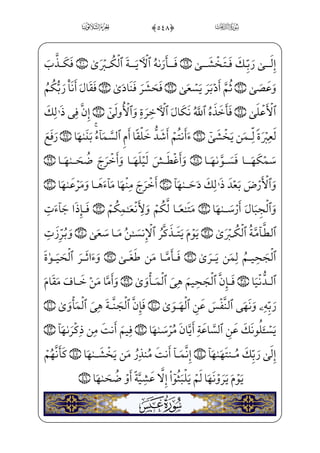 سُورَةُ النَّازِعَاتِ ﴿٥٤٨﴾ الجُزْءُ الثَّلَاثُونَ
إِلَىٰ رَبِّكَ فَتَخْشَىٰ ١٩ فَأَرَىٰهُ ٱلْءَايَةَ ٱلْكُبْرَىٰ ٢٠ فَكَذَّبَ
وَعَصَىٰ ٢١ ثُمَّ أَدْبَرَ يَسْعَىٰ ٢٢ فَحَشَرَ فَنَادَىٰ ٢٣ فَقَالَ أَنَا۠ رَبُّكُمُ
ٱلْأَعْلَىٰ ٢٤ فَأَخَذَهُ ٱللَّهُ نَكَالَ ٱلْءَاخِرَةِ وَٱلْأُولَىٰٓ ٢٥ إِنَّ فِى ذَٰلِكَ
لَعِبْرَةً لِّمَن يَخْشَىٰٓ ٢٦ ءَأَنتُمْ أَشَدُّ خَلْقًا أَمِ ٱلسَّمَآءُ ۚ بَنَىٰهَا ٢٧ رَفَعَ
سَمْكَهَا فَسَوَّىٰهَا ٢٨ وَأَغْطَشَ لَيْلَهَا وَأَخْرَجَ ضُحَىٰهَا ٢٩
وَٱلْأَرْضَ بَعْدَ ذَٰلِكَ دَحَىٰهَآ ٣٠ أَخْرَجَ مِنْهَا مَآءَهَا وَمَرْعَىٰهَا ٣١
وَٱلْجِبَالَ أَرْسَىٰهَا ٣٢ مَتَٰعًا لَّكُمْ وَلِأَنْعَٰمِكُمْ ٣٣ فَإِذَا جَآءَتِ
ٱلطَّآمَّةُ ٱلْكُبْرَىٰ ٣٤ يَوْمَ يَتَذَكَّرُ ٱلْإِنسَٰنُ مَا سَعَىٰ ٣٥ وَبُرِّزَتِ
ٱلْجَحِيمُ لِمَن يَرَىٰ ٣٦ فَأَمَّا مَن طَغَىٰ ٣٧ وَءَاثَرَ ٱلْحَيَوٰةَ
ٱلدُّنْيَا ٣٨ فَإِنَّ ٱلْجَحِيمَ هِىَ ٱلْمَأْوَىٰ ٣٩ وَأَمَّا مَنْ خَافَ مَقَامَ
رَبِّهِۦ وَنَهَى ٱلنَّفْسَ عَنِ ٱلْهَوَىٰ ٤٠ فَإِنَّ ٱلْجَنَّةَ هِىَ ٱلْمَأْوَىٰ ٤١
يَسْـَٔلُونَكَ عَنِ ٱلسَّاعَةِ أَيَّانَ مُرْسَىٰهَا ٤٢ فِيمَ أَنتَ مِن ذِكْرَىٰهَآ ٤٣
إِلَىٰ رَبِّكَ مُنتَهَىٰهَآ ٤٤ إِنَّمَآ أَنتَ مُنذِرُ مَن يَخْشَىٰهَا ٤٥ كَأَنَّهُمْ
يَوْمَ يَرَوْنَهَا لَمْ يَلْبَثُوٓا۟ إِلَّا عَشِيَّةً أَوْ ضُحَىٰهَا ٤٦
سُورَةُ عَبَسَ